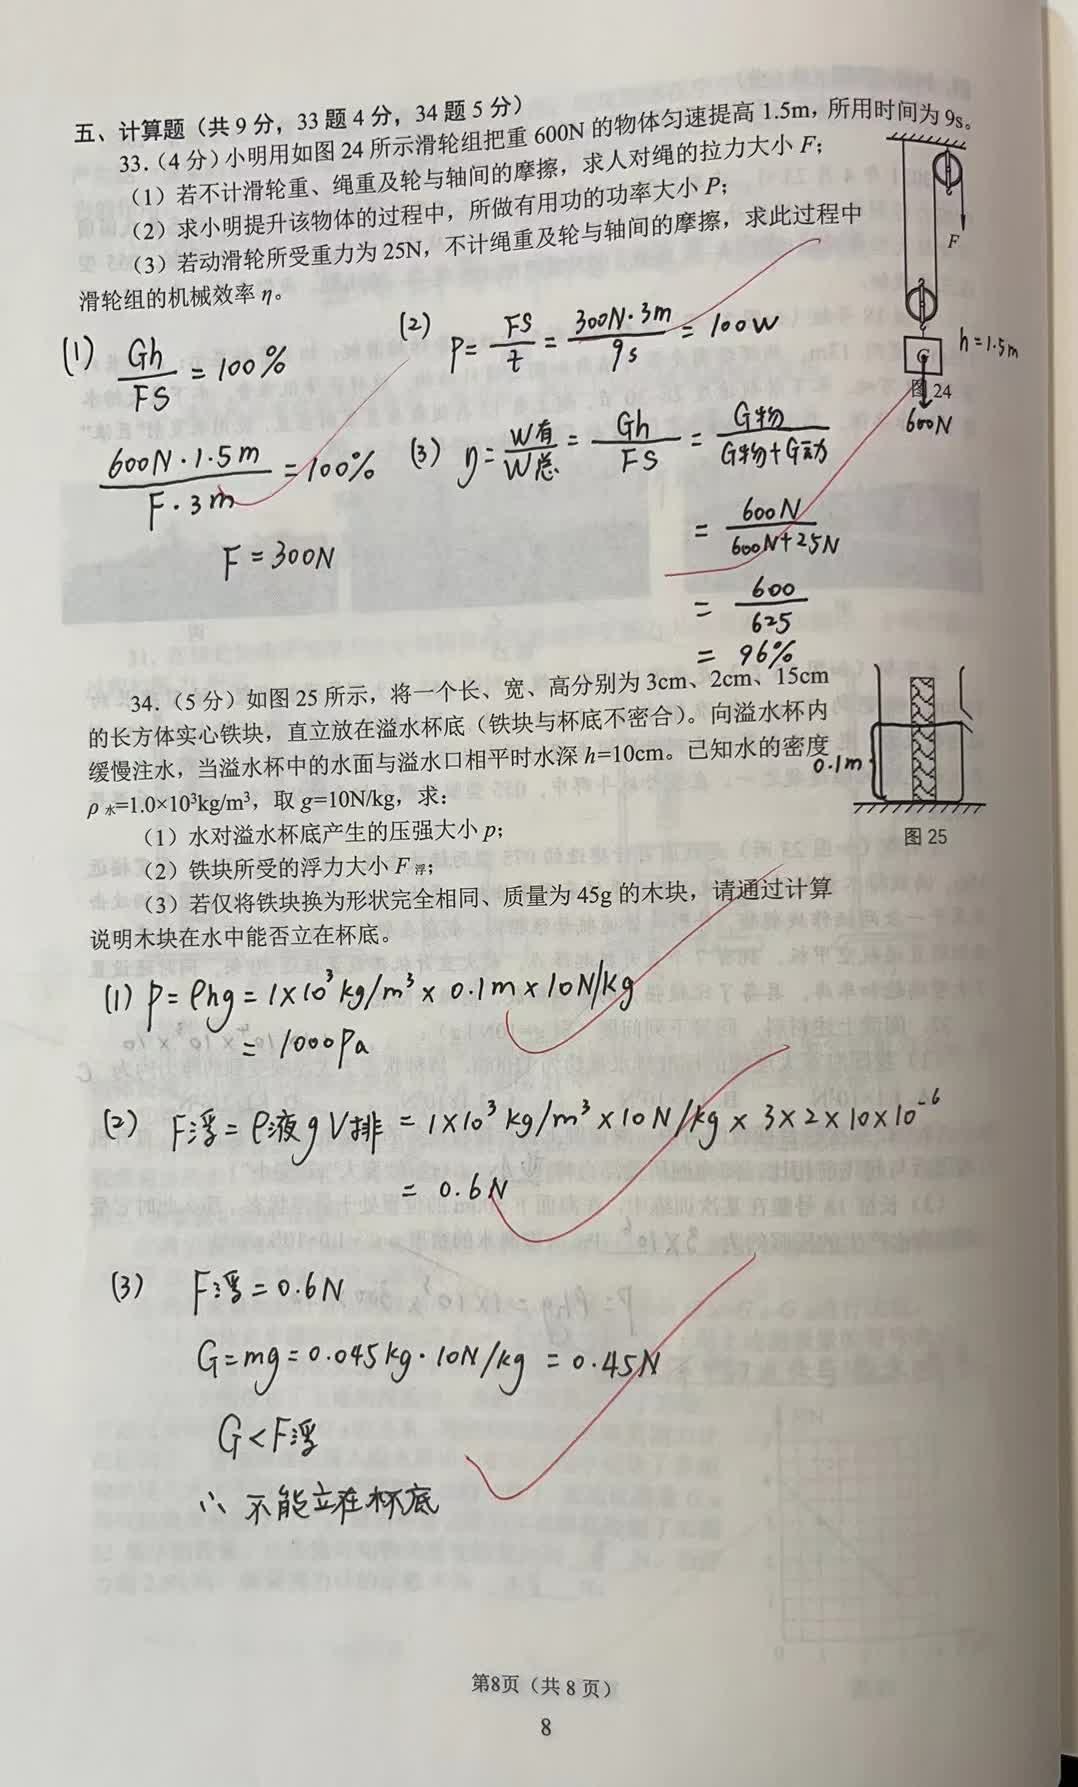 五、计算题（共9分，33题4分，34题5分）
33.（4分）小明用如图24所示滑轮组把重600N的物体匀速提高1.5m，所用时间为9s。
（1）若不计滑轮重、绳重及轮与轴间的摩擦，求人对绳的拉力大小F；
（2）求小明提升该物体的过程中，所做有用功的功率大小P；
（3）若动滑轮所受重力为25N，不计绳重及轮与轴间的摩擦，求此过程中
滑轮组的机械效率η。
F
h=1.5m
G
图24
600N
(1) Gh/FS = 100%
600N·1.5m/F·3m = 100%
F=300N
(2) P= FS/t = 300N·3m/9s = 100W
(3) η= W有/W总 = Gh/FS = G物/G物+G动
= 600N/600N+25N
= 600/625
= 96%
34.（5分）如图25所示，将一个长、宽、高分别为3cm、2cm、15cm
的长方体实心铁块，直立放在溢水杯底（铁块与杯底不密合）。向溢水杯内
缓慢注水，当溢水杯中的水面与溢水口相平时水深h=10cm。已知水的密度
ρ水=1.0×10³kg/m³，取g=10N/kg，求：
（1）水对溢水杯底产生的压强大小p；
（2）铁块所受的浮力大小F浮；
（3）若仅将铁块换为形状完全相同、质量为45g的木块，请通过计算
说明木块在水中能否立在杯底。
0.1m
图25
(1) P=ρhg=1×10³kg/m³×0.1m×10N/kg
= 1000Pa
(2) F浮=ρ液gV排 =1×10³kg/m³×10N/kg×3×2×10×10⁻⁶
= 0.6N
(3) F浮=0.6N
G=mg=0.045kg·10N/kg=0.45N
G<F浮
∴ 不能立在杯底
第8页（共8页）
8